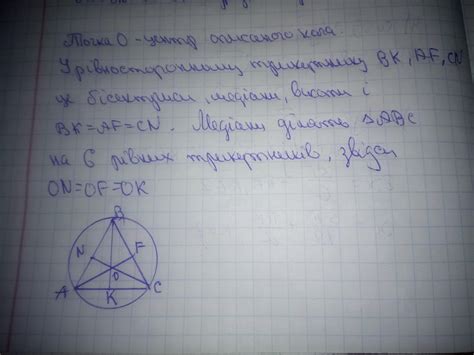 Точка О - центр описаного кола.
У рівносторонньому трикутнику BK, AF, CN
це бісектриси, медіани, висоти і
BK=AF=CN. Медіани ділять △ABC
на 6 рівних трикутників, звідси
ON=OF=OK
B
N F
O
A K C